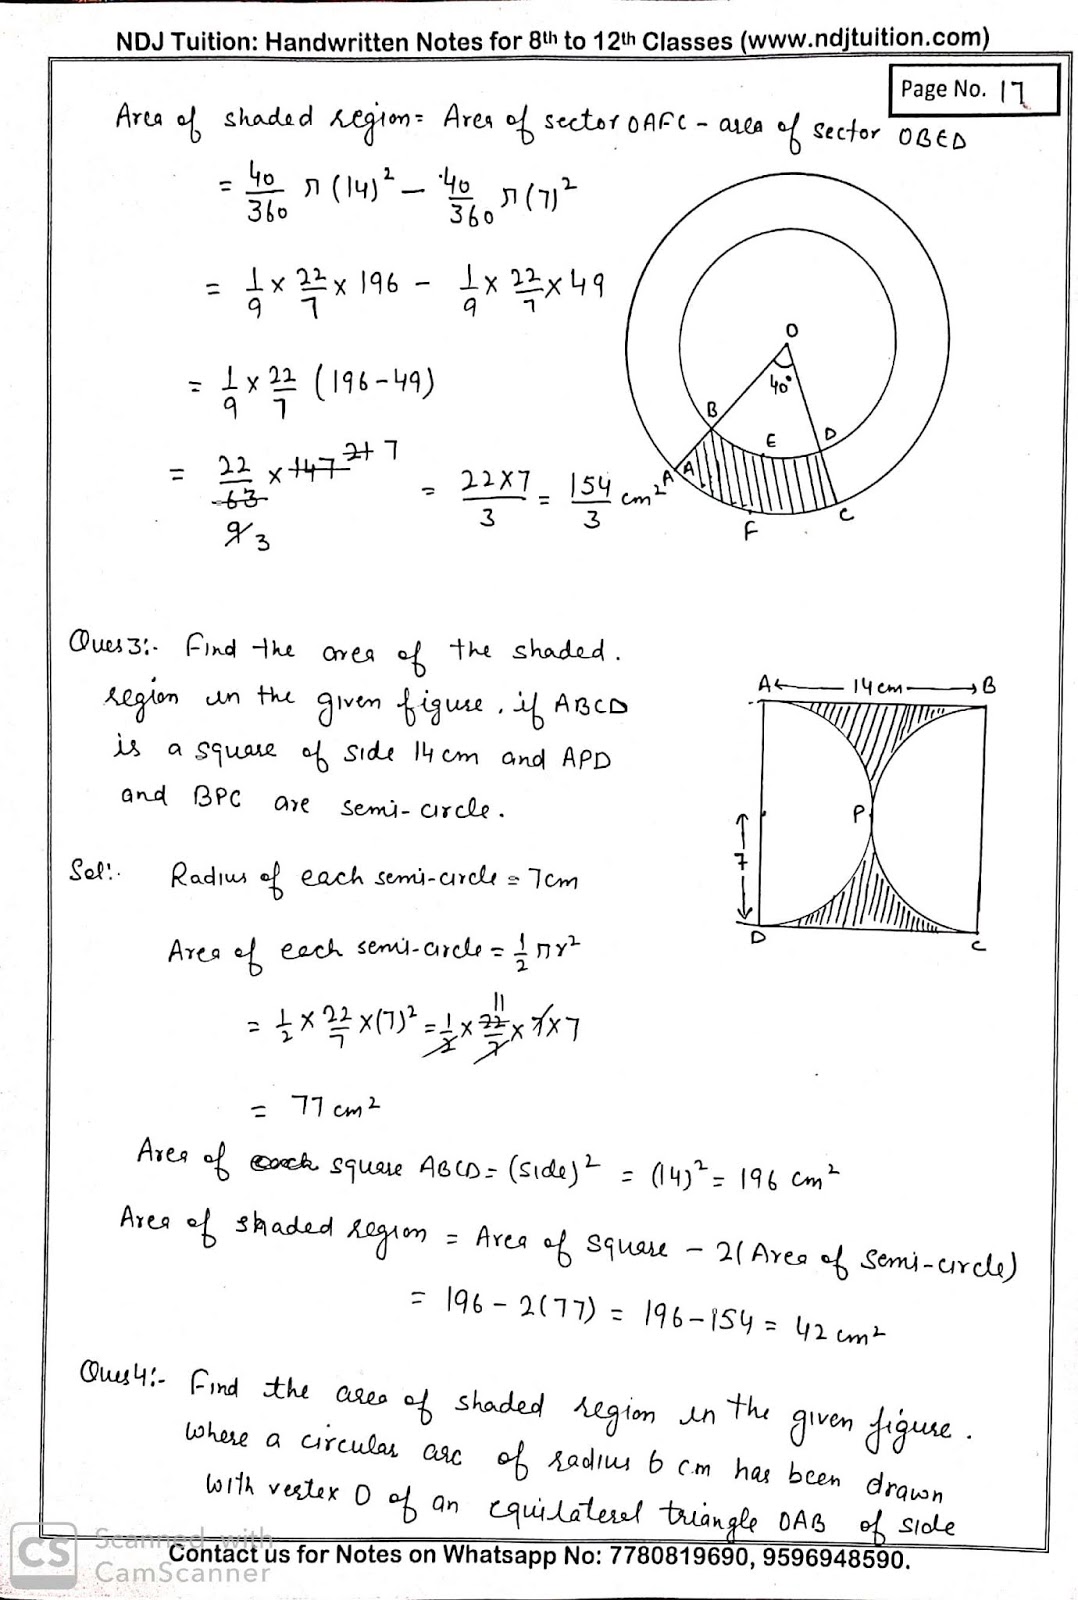 NDJ Tuition: Handwritten Notes for 8th to 12th Classes (www.ndjtuition.com)
Page No. 17
Area of shaded region = Area of sector OAFC - area of sector OBED
= 40/360 π (14)² - 40/360 π (7)²
= 1/9 × 22/7 × 196 - 1/9 × 22/7 × 49
= 1/9 × 22/7 (196-49)
= 22/63 × 147 21 7 = 22×7/3 = 154/3 cm²
9 3
O
40°
B
E
D
A
A
A
F
C
Ques 3:- Find the area of the shaded.
region in the given figure, if ABCD
is a square of side 14 cm and APD
and BPC are semi-circle.
A 14 cm B
P
7
D
C
Sol:. Radius of each semi-circle = 7cm
Area of each semi-circle = 1/2 πr²
= 1/2 × 22/7 ×(7)² = 1/2 × 22/7 × 7×7
11
= 77 cm²
Area of each square ABCD = (side)² = (14)² = 196 cm²
Area of shaded region = Area of square - 2(Area of semi-circle)
= 196 - 2(77) = 196-154 = 42 cm²
Ques 4:- Find the area of shaded region in the given figure.
where a circular arc of radius 6 cm has been drawn
with vertex O of an equilateral triangle OAB of side
CS
Scanned with
CamScanner
Contact us for Notes on Whatsapp No: 7780819690, 9596948590.